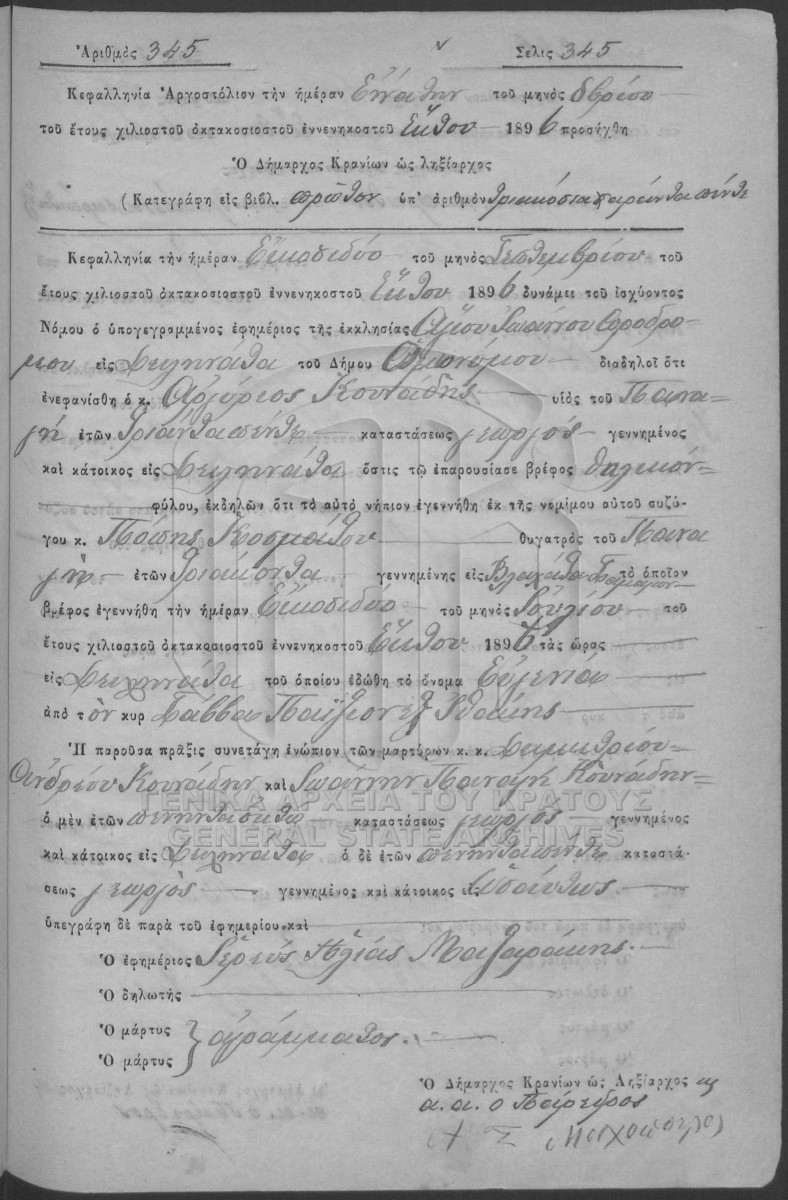 Ἀριθμὸς 345 Σελὶς 345
Κεφαλληνία Ἀργοστόλιον τὴν ἡμέραν Ἐννάτην τοῦ μηνὸς 8βρίου
τοῦ ἔτους χιλιοστοῦ ὀκτακοσιοστοῦ ἐννενηκοστοῦ Ἕκτου 1896 προσήχθη
Ὁ Δήμαρχος Κρανίων ὡς ληξίαρχος
(Κατεγράφη εἰς βιβλ. πρῶτον ὑπ' ἀριθμὸν τριακόσια σαράντα πέντε
Κεφαλληνία τὴν ἡμέραν Εἴκοσι δύο τοῦ μηνὸς Σεπτεμβρίου τοῦ
ἔτους χιλιοστοῦ ὀκτακοσιοστοῦ ἐννενηκοστοῦ Ἕκτου 1896 δυνάμει τοῦ ἰσχύοντος
Νόμου ὁ ὑπογεγραμμένος ἐφημέριος τῆς ἐκκλησίας Ἁγίου Ἰωάννου Προδρό-
μου εἰς Φειληνάτα τοῦ Δήμου διαδηλοῖ ὅτι
ἐνεφανίσθη ὁ κ. Ἀργύριος Κουνάδης υἱὸς τοῦ Πανα-
γή ἐτῶν Τριάντα πέντε καταστάσεως γεωργός γεννημένος
καὶ κάτοικος εἰς Φειληνάτα ὅστις τῷ ἐπαρουσίασε βρέφος θηλυκόν
φύλου, ἐκδηλῶν ὅτι τὸ αὐτὸ νήπιον ἐγεννήθη ἐκ τῆς νομίμου αὐτοῦ συζύ-
γου κ. Πόπης Κοσμάτου θυγατρὸς τοῦ Πανα
γή ἐτῶν Τριάκοντα γεννημένης εἰς Βλαχάτα τὸ ὁποῖον
βρέφος ἐγεννήθη τὴν ἡμέραν Εἴκοσι δύο τοῦ μηνὸς Ἰουλίου τοῦ
ἔτους χιλιοστοῦ ὀκτακοσιοστοῦ ἐννενηκοστοῦ Ἕκτου 1896 τὰς ὥρας
εἰς Φειληνάτα τοῦ ὁποίου ἐδώθη τὸ ὄνομα Εὐγενία
ἀπὸ τὸν κυρ Σάββα ἐξ Ἰθάκης
Ἡ παροῦσα πρᾶξις συνετάγη ἐνώπιον τῶν μαρτύρων κ. κ. Δημητρίου
Ἀνδρέου Κουνάδην καὶ Ἰωάννην Παναγή Κουνάδην
ὁ μὲν ἐτῶν πενήντα ὀκτώ καταστάσεως γεωργός γεννημένος
καὶ κάτοικος εἰς Φειληνάτα ὁ δὲ ἐτῶν πενήντα πέντε καταστά-
σεως γεωργὸς γεννημένος καὶ κάτοικος εἰς ὡσαύτως
ὑπεγράφη δὲ παρὰ τοῦ ἐφημερίου καὶ
Ὁ ἐφημέριος Ἱερεύς Ἠλίας Μαζαράκης
Ὁ δηλωτὴς
Ὁ μάρτυς } ἀγράμματος.
Ὁ μάρτυς
ΓΕΝΙΚΑ ΑΡΧΕΙΑ ΤΟΥ ΚΡΑΤΟΥΣ
GENERAL STATE ARCHIVES
Ὁ Δήμαρχος Κρανίων ὡς Ληξίαρχος
α. α. ὁ Πάρεδρος